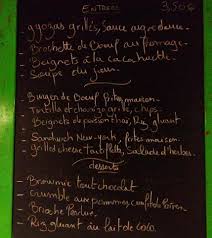 Entrées 3,50€
- gyozas grillés, sauce aigre douce.
- Brochette de Boeuf au fromage
- Beignets à la cacahuète
- Soupe du jour.
- Burger de Boeuf, frites maison
- Tortilla et chorizo grillé, chips
- Beignets de poisson thaï, Riz gluant
- Sandwich New-york, frites maison
- grilled cheese, Salade d'herbes.
desserts
- Brownie tout chocolat
- crumble aux pommes
- Brioche Perdue
- Riz gluant au lait de coco.